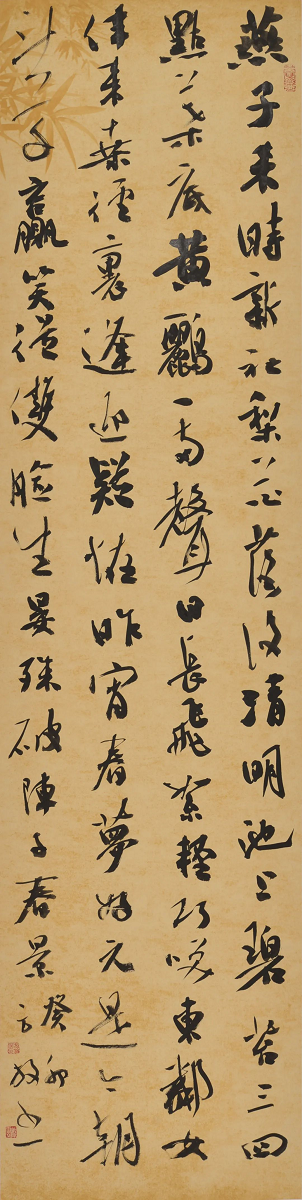 燕子来時新社梨花落後清明池上碧苔三四
點葉底黃鸝一兩聲日長飛絮輕巧笑東鄰女
伴采桑徑裏逢迎疑怪昨宵春夢好元是今朝
鬥草贏笑從雙臉生晏殊破陣子春景
癸卯